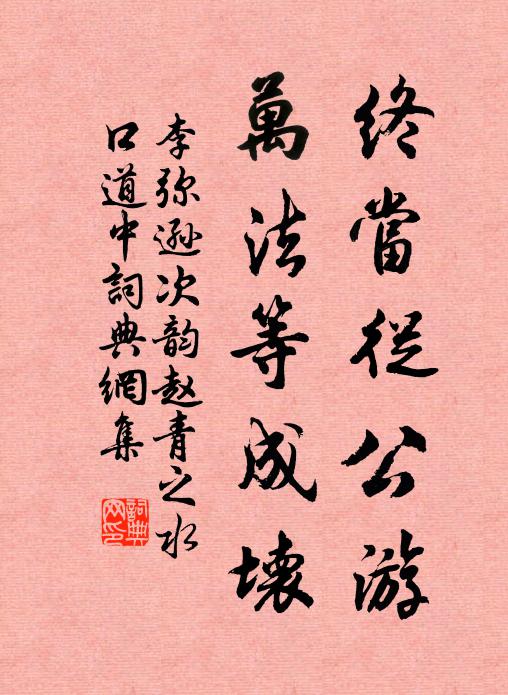 終當從公游
萬法等成壞
李弥遜次韵趙青之水
口道中詞典網集
詞典
网印